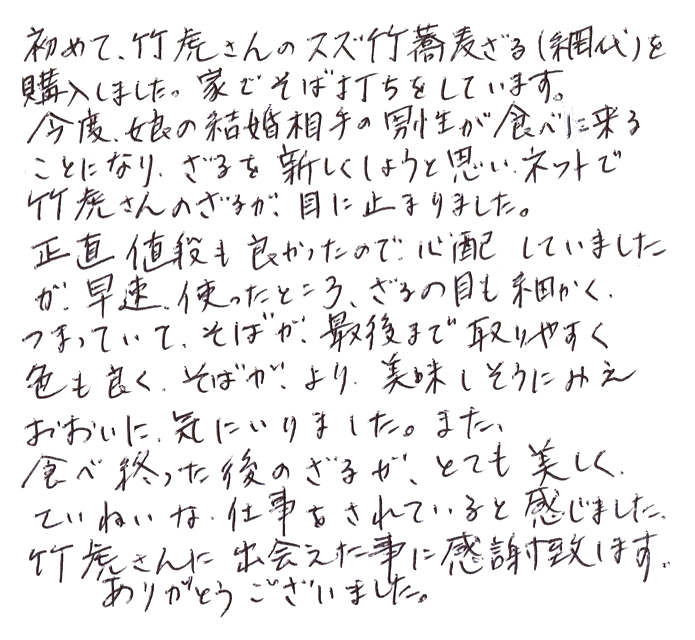 初めて、竹虎さんのスズ竹蕎麦ざる(網代)を
購入しました。家でそば打ちをしています。
今度、娘の結婚相手の男性が食べに来る
ことになり、ざるを新しくしようと思い、ネットで
竹虎さんのざるが、目に止まりました。
正直値段も良かったので、心配していました
が、早速、使ったところ、ざるの目も細かく、
つまっていて、そばが、最後まで取りやすく
色も良く、そばが、より、美味しそうにみえ
おおいに、気にいりました。また、
食べ終った後のざるが、とても美しく、
ていねいな、仕事をされていると感じました。
竹虎さんに出会えた事に感謝致します。
ありがとうございました。